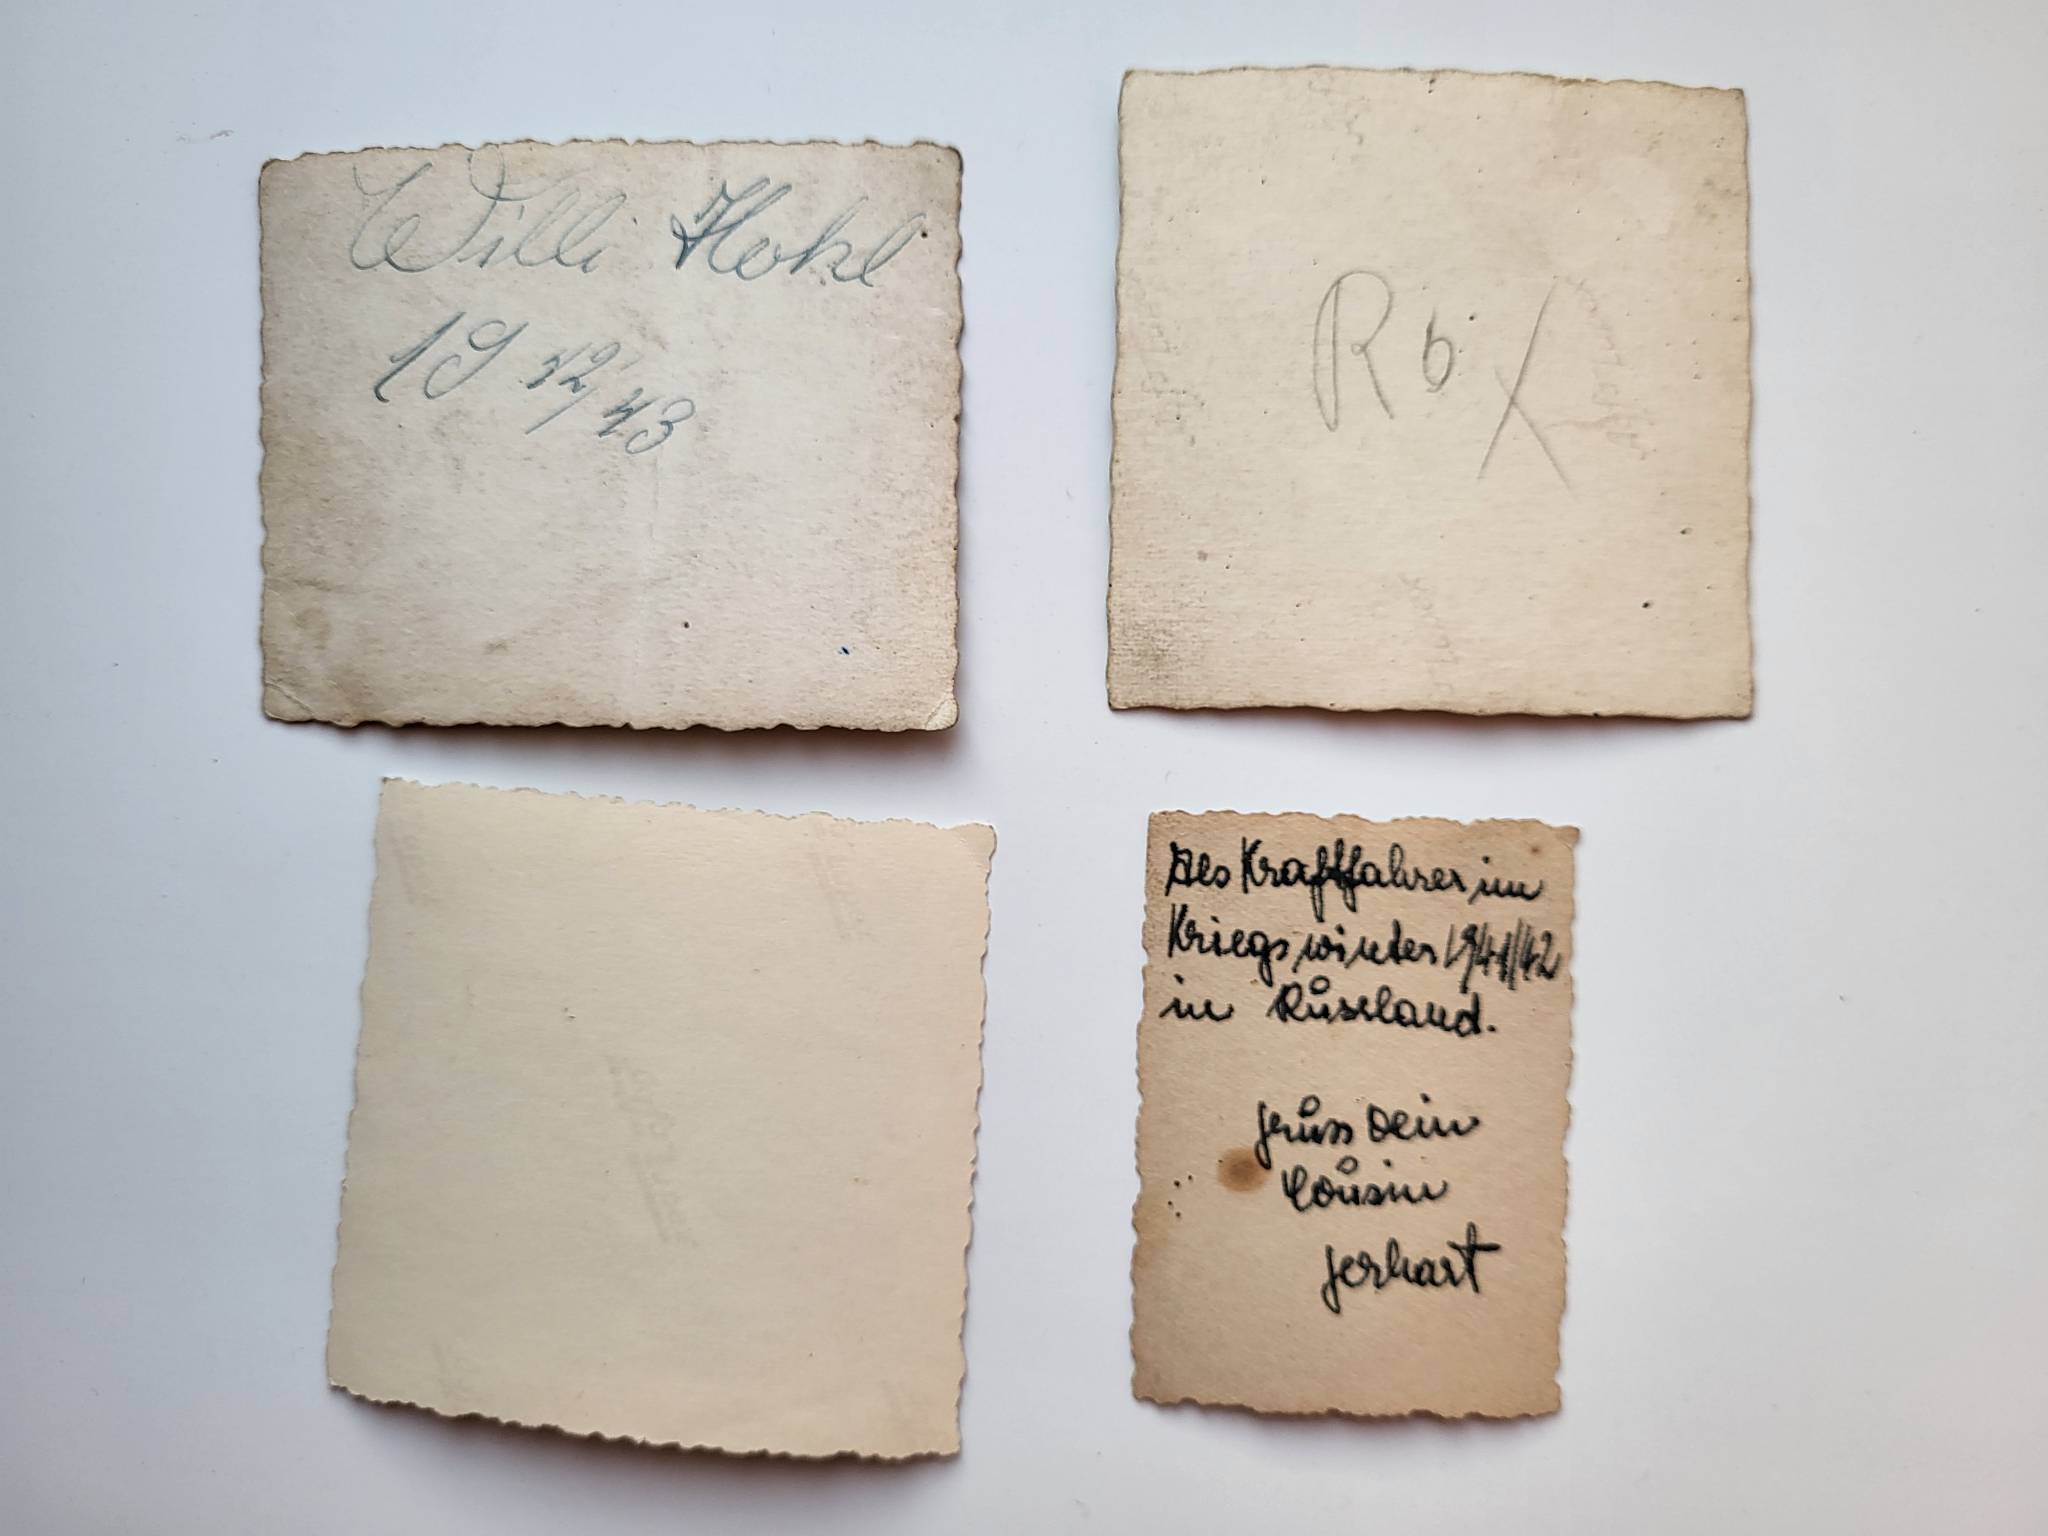 Willi Hohl
1942/43
R 6 X
Als Kraftfahrer im
Kriegswinter 1941/42
in Russland.
Gruss Dein
Cousin
Gerhart